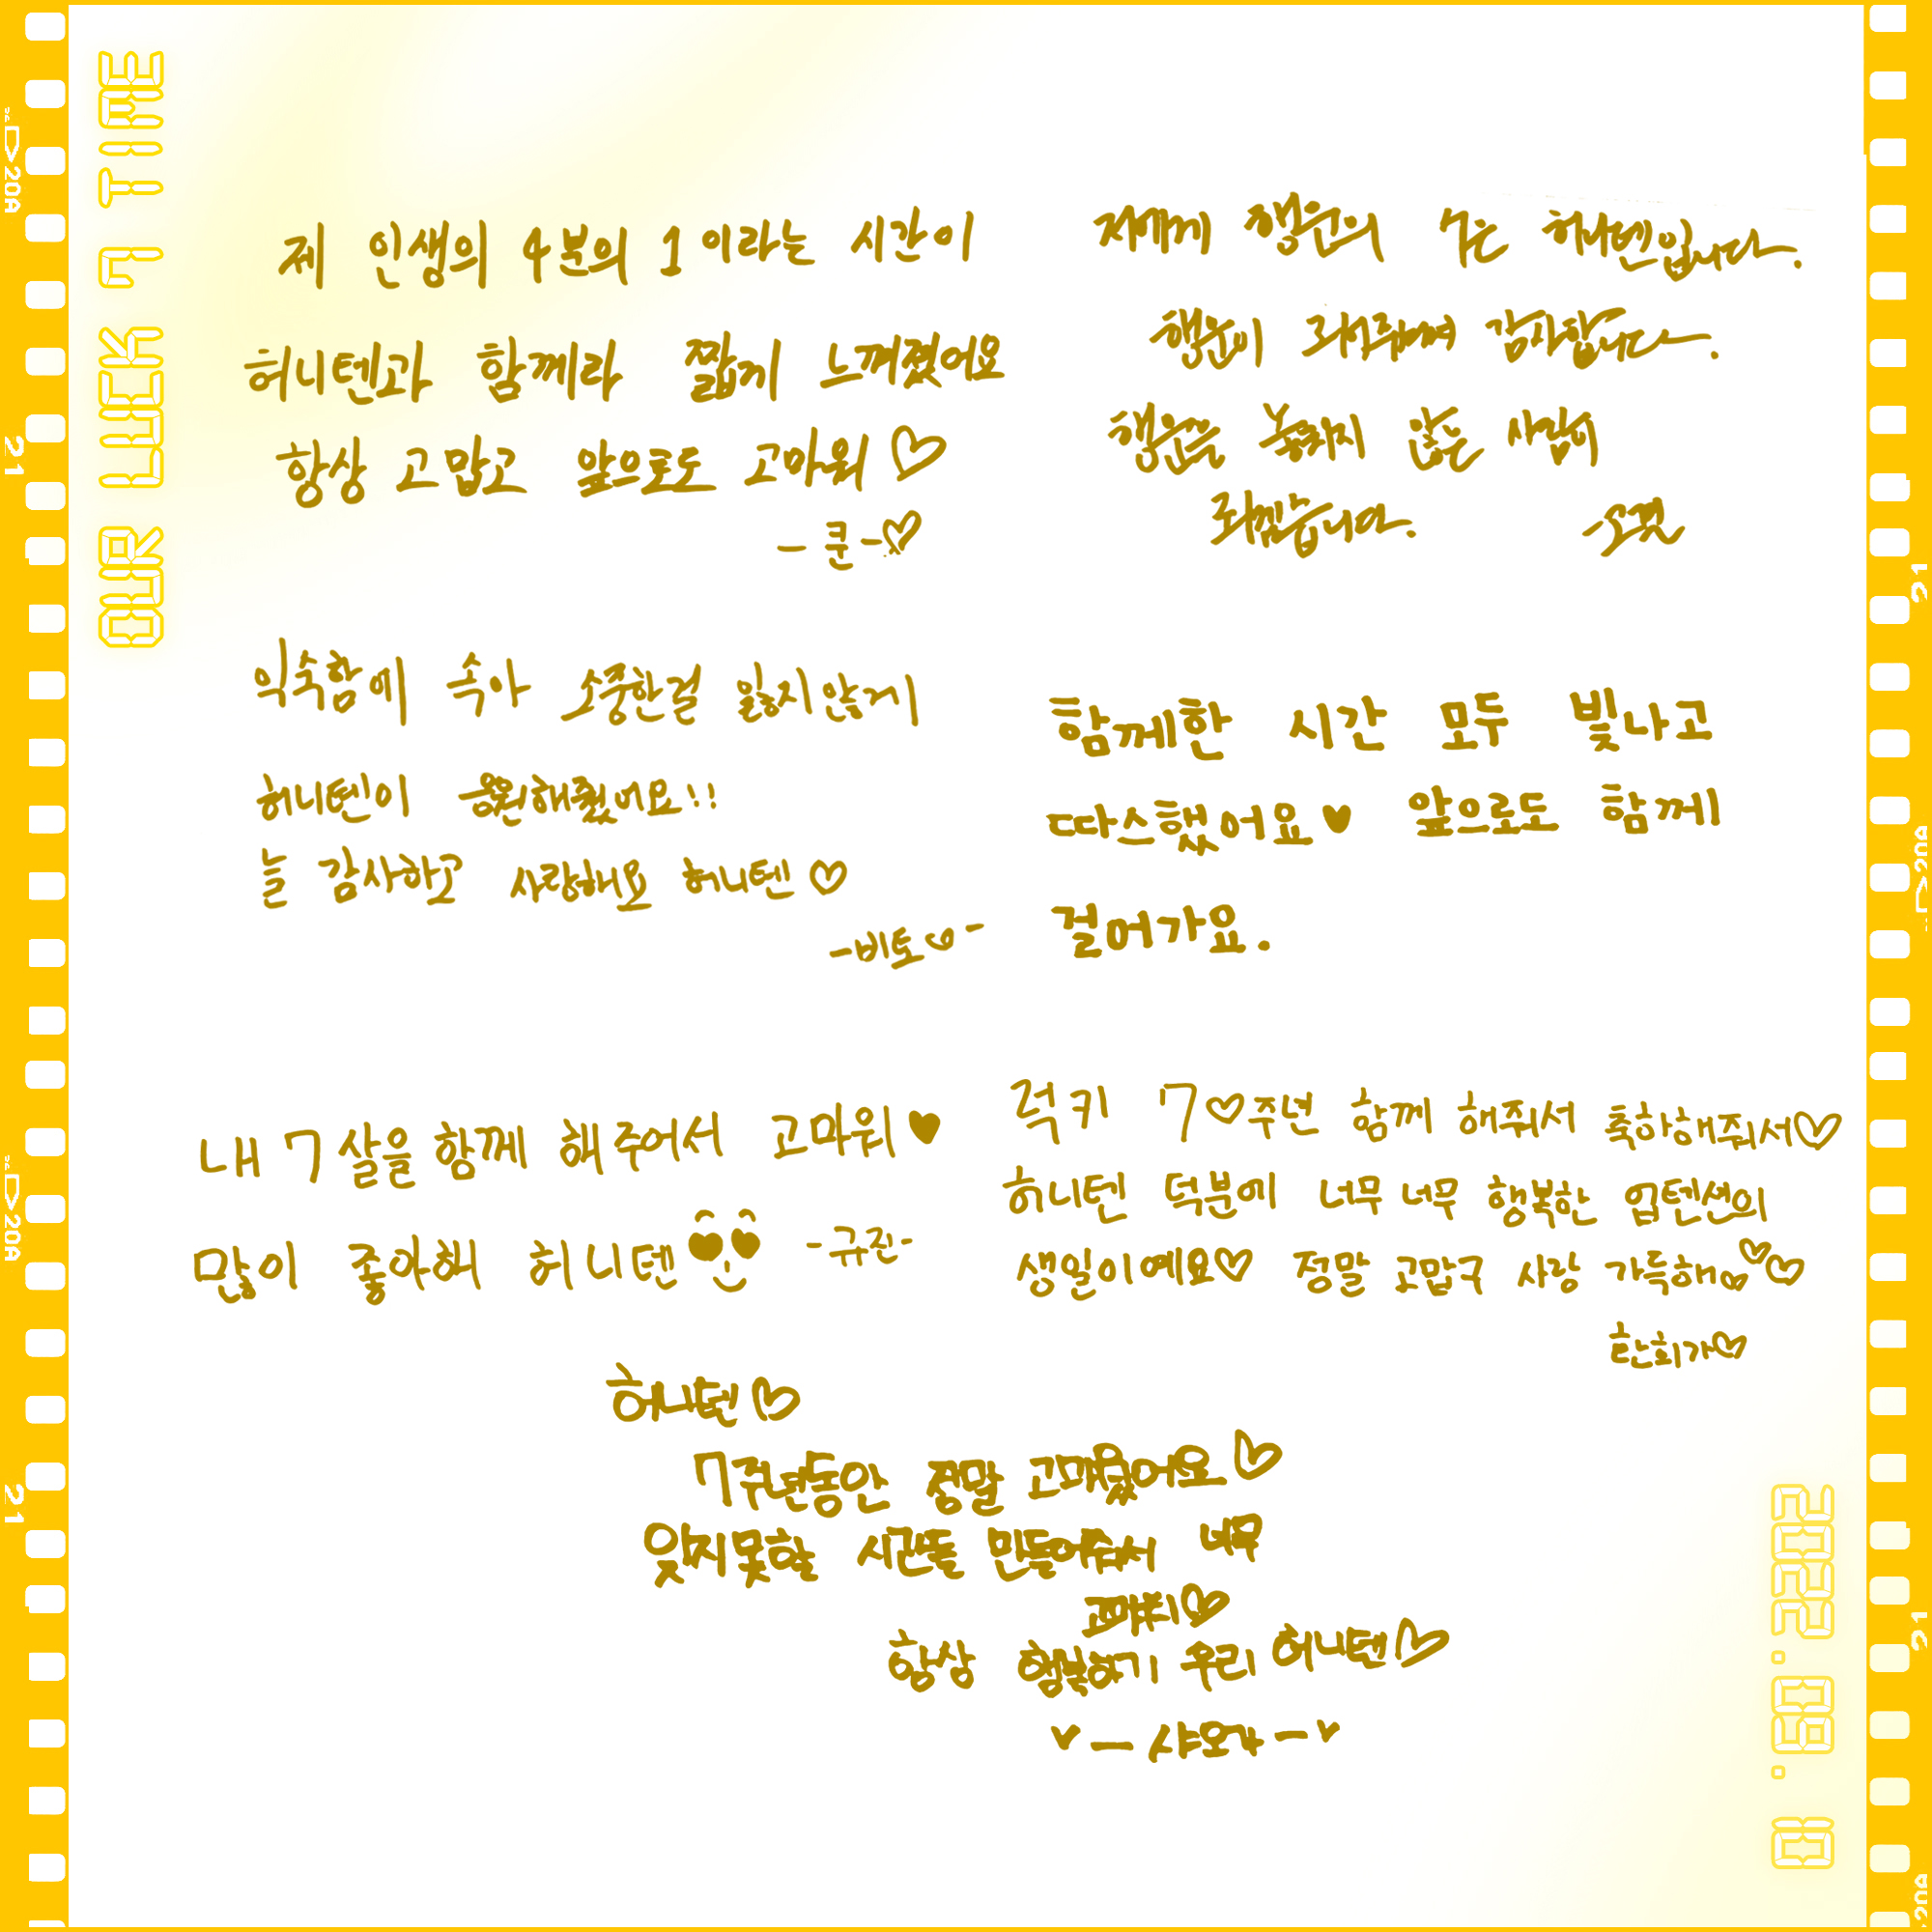 OUR LUCK 7 TIME
제 인생의 4분의 1이라는 시간이
허니텐과 함께라 짧게 느껴졌어요
항상 고맙고 앞으로도 고마워♡
-쿤-♡
저에게 행운의 7은 허니텐입니다.
행운이 되어주셔서 감사합니다.
행운을 놓치지 않는 사람이
되겠습니다. -고결
익숙함에 속아 소중한걸 잃지않게
허니텐이 응원해줬어요!!
늘 감사하고 사랑해요 허니텐♡
-비토-
함께한 시간 모두 빛나고
따스했어요♥ 앞으로도 함께
걸어가요.
내 7살을 함께 해주어서 고마워♥
많이 좋아해 허니텐 -규진-
럭키 7♡주년 함께 해줘서 축하해줘서♡
허니텐 덕분에 너무 너무 행복한 업텐션의
생일이에요♡ 정말 고맙구 사랑 가득해♡♡
환희가♡
허니텐♡
7주년동안 정말 고마웠어요♡
잊지못할 시간들 만들어줘서 너무
고마워♡
항상 행복하기 우리 허니텐♡
-샤오가-
2022.09.10
▷20A
21
▷20A
21
21
▷20A
21
20A